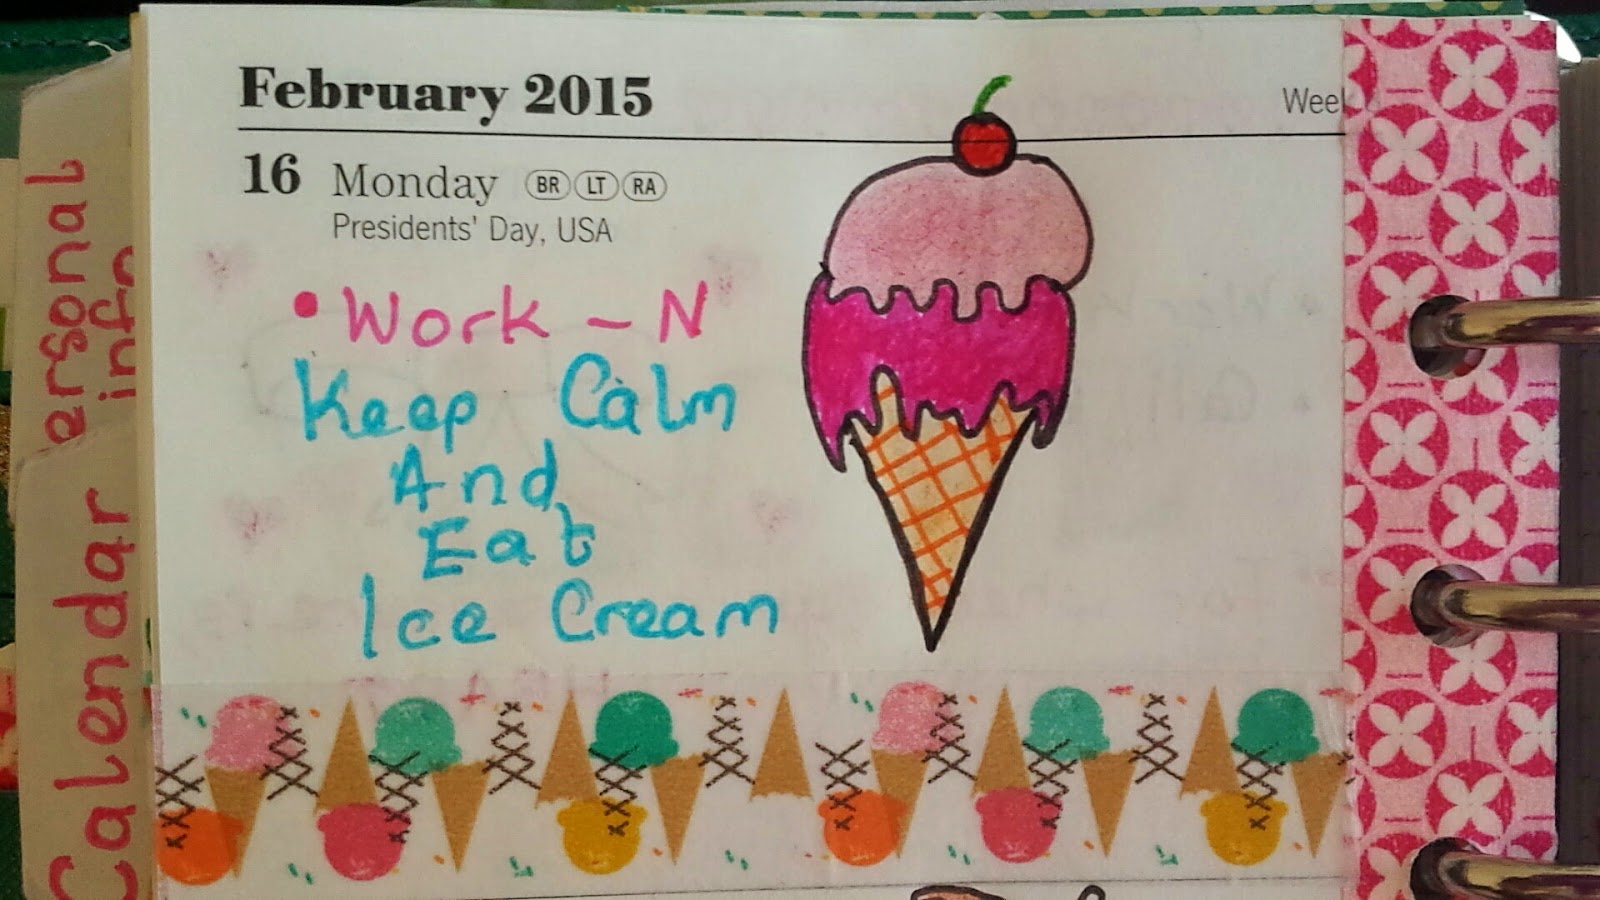 February 2015
Week
16 Monday BR LT RA
Presidents' Day, USA
• Work - N
Keep Calm
And
Eat
Ice Cream
ersonal
info
Calendar